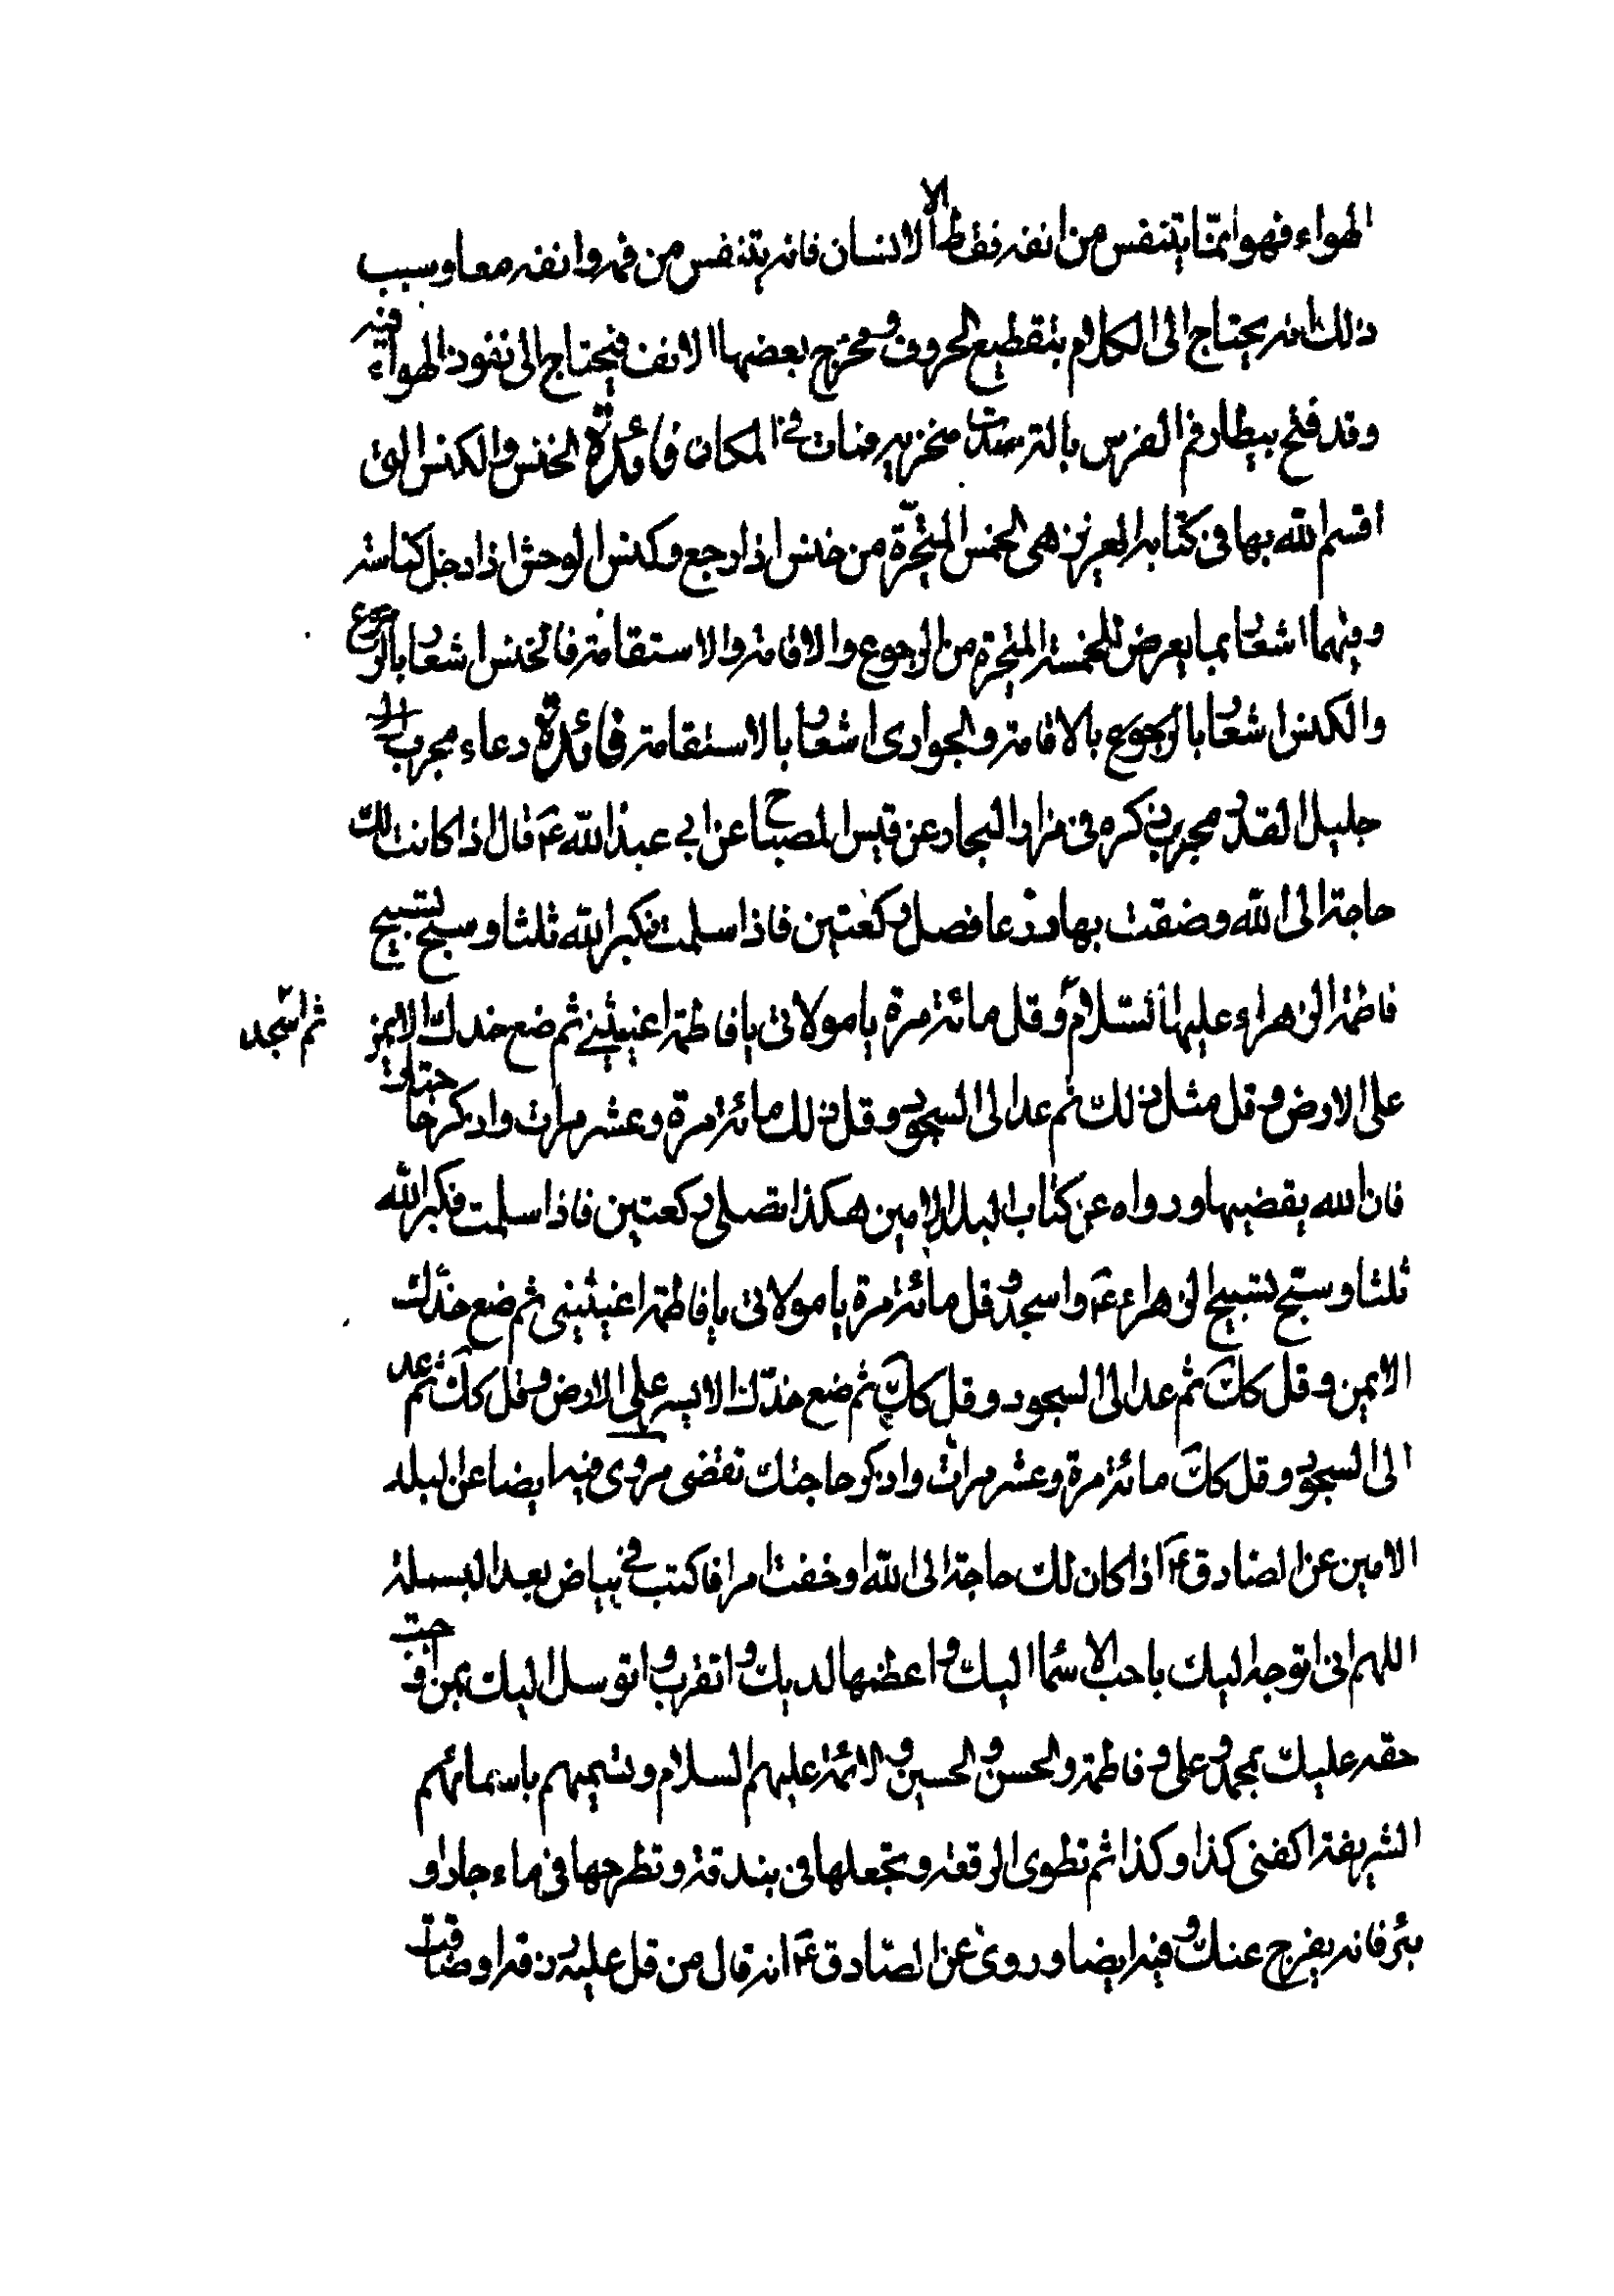 الهواء فهو انما يتنفس من انفه فقط الا الانسان فانه يتنفس من فمه وانفه معا وسبب
ذلك انه يحتاج الى الكلام بتقطيع الحروف ومخرج بعضها الانف فيحتاج الى نفوذ الهواء فيه
وقد فتح بيطار فم الفرس بالة سدت منخريه فمات في المكان فائدة الخنس والكنس التي
اقسم الله بها في كتابه العزيز هي الخمس المتحيرة من خنس اذا رجع وكنس الوحش اذا دخل كناسته
وفيهما اشعار بما يعرض للخمسة المتحيرة من الرجوع والاقامة والاستقامة فالخنس اشعار بالرجوع
والكنس اشعار بالرجوع بالاقامة والجوارى اشعار بالاستقامة فائدة دعاء مجرب
جليل القدر مجرب ذكره في مزار البحار عن قبس المصباح عن ابي عبد الله ع قال اذا كانت لك
حاجة الى الله وضقت بها ذرعا فصل ركعتين فاذا سلمت فكبر الله ثلثا وسبح تسبيح
فاطمة الزهراء عليها السلام وقل مائة مرة يا مولاتي يا فاطمة اغيثيني ثم ضع خدك الايمن
ثم اسجد
على الارض وقل مثل ذلك ثم عد الى السجود وقل ذلك مائة مرة وعشر مرات واذكر حاجتك
فان الله يقضيها ورواه عن كتاب البلد الامين هكذا تصلي ركعتين فاذا سلمت فكبر الله
ثلثا وسبح تسبيح الزهراء ع واسجد وقل مائة مرة يا مولاتي يا فاطمة اغيثيني ثم ضع خدك
الايمن وقل كك ثم عد الى السجود وقل كك ثم ضع خدك الايسر على الارض وقل كك ثم عد
الى السجود وقل كك مائة مرة وعشر مرات واذكر حاجتك تقضى مروى فيه ايضا عن البلد
الامين عن الصادق ع اذا كان لك حاجة الى الله او خفت امرا فاكتب في بياض بعد البسملة
اللهم اني اتوجه اليك باحب الاسماء اليك واعظمها لديك واتقرب واتوسل اليك بمن اوجبت
حقه عليك بمحمد وعلي وفاطمة والحسن والحسين والائمة عليهم السلام وتسميهم باسمائهم
الشريفة اكفني كذا وكذا ثم تطوى الرقعة وتجعلها في بندقة وتطرحها في ماء جار او
بئر فانه يفرج عنك وفيه ايضا وروى عن الصادق ع انه قال من قل عليه رزقه او ضاقت